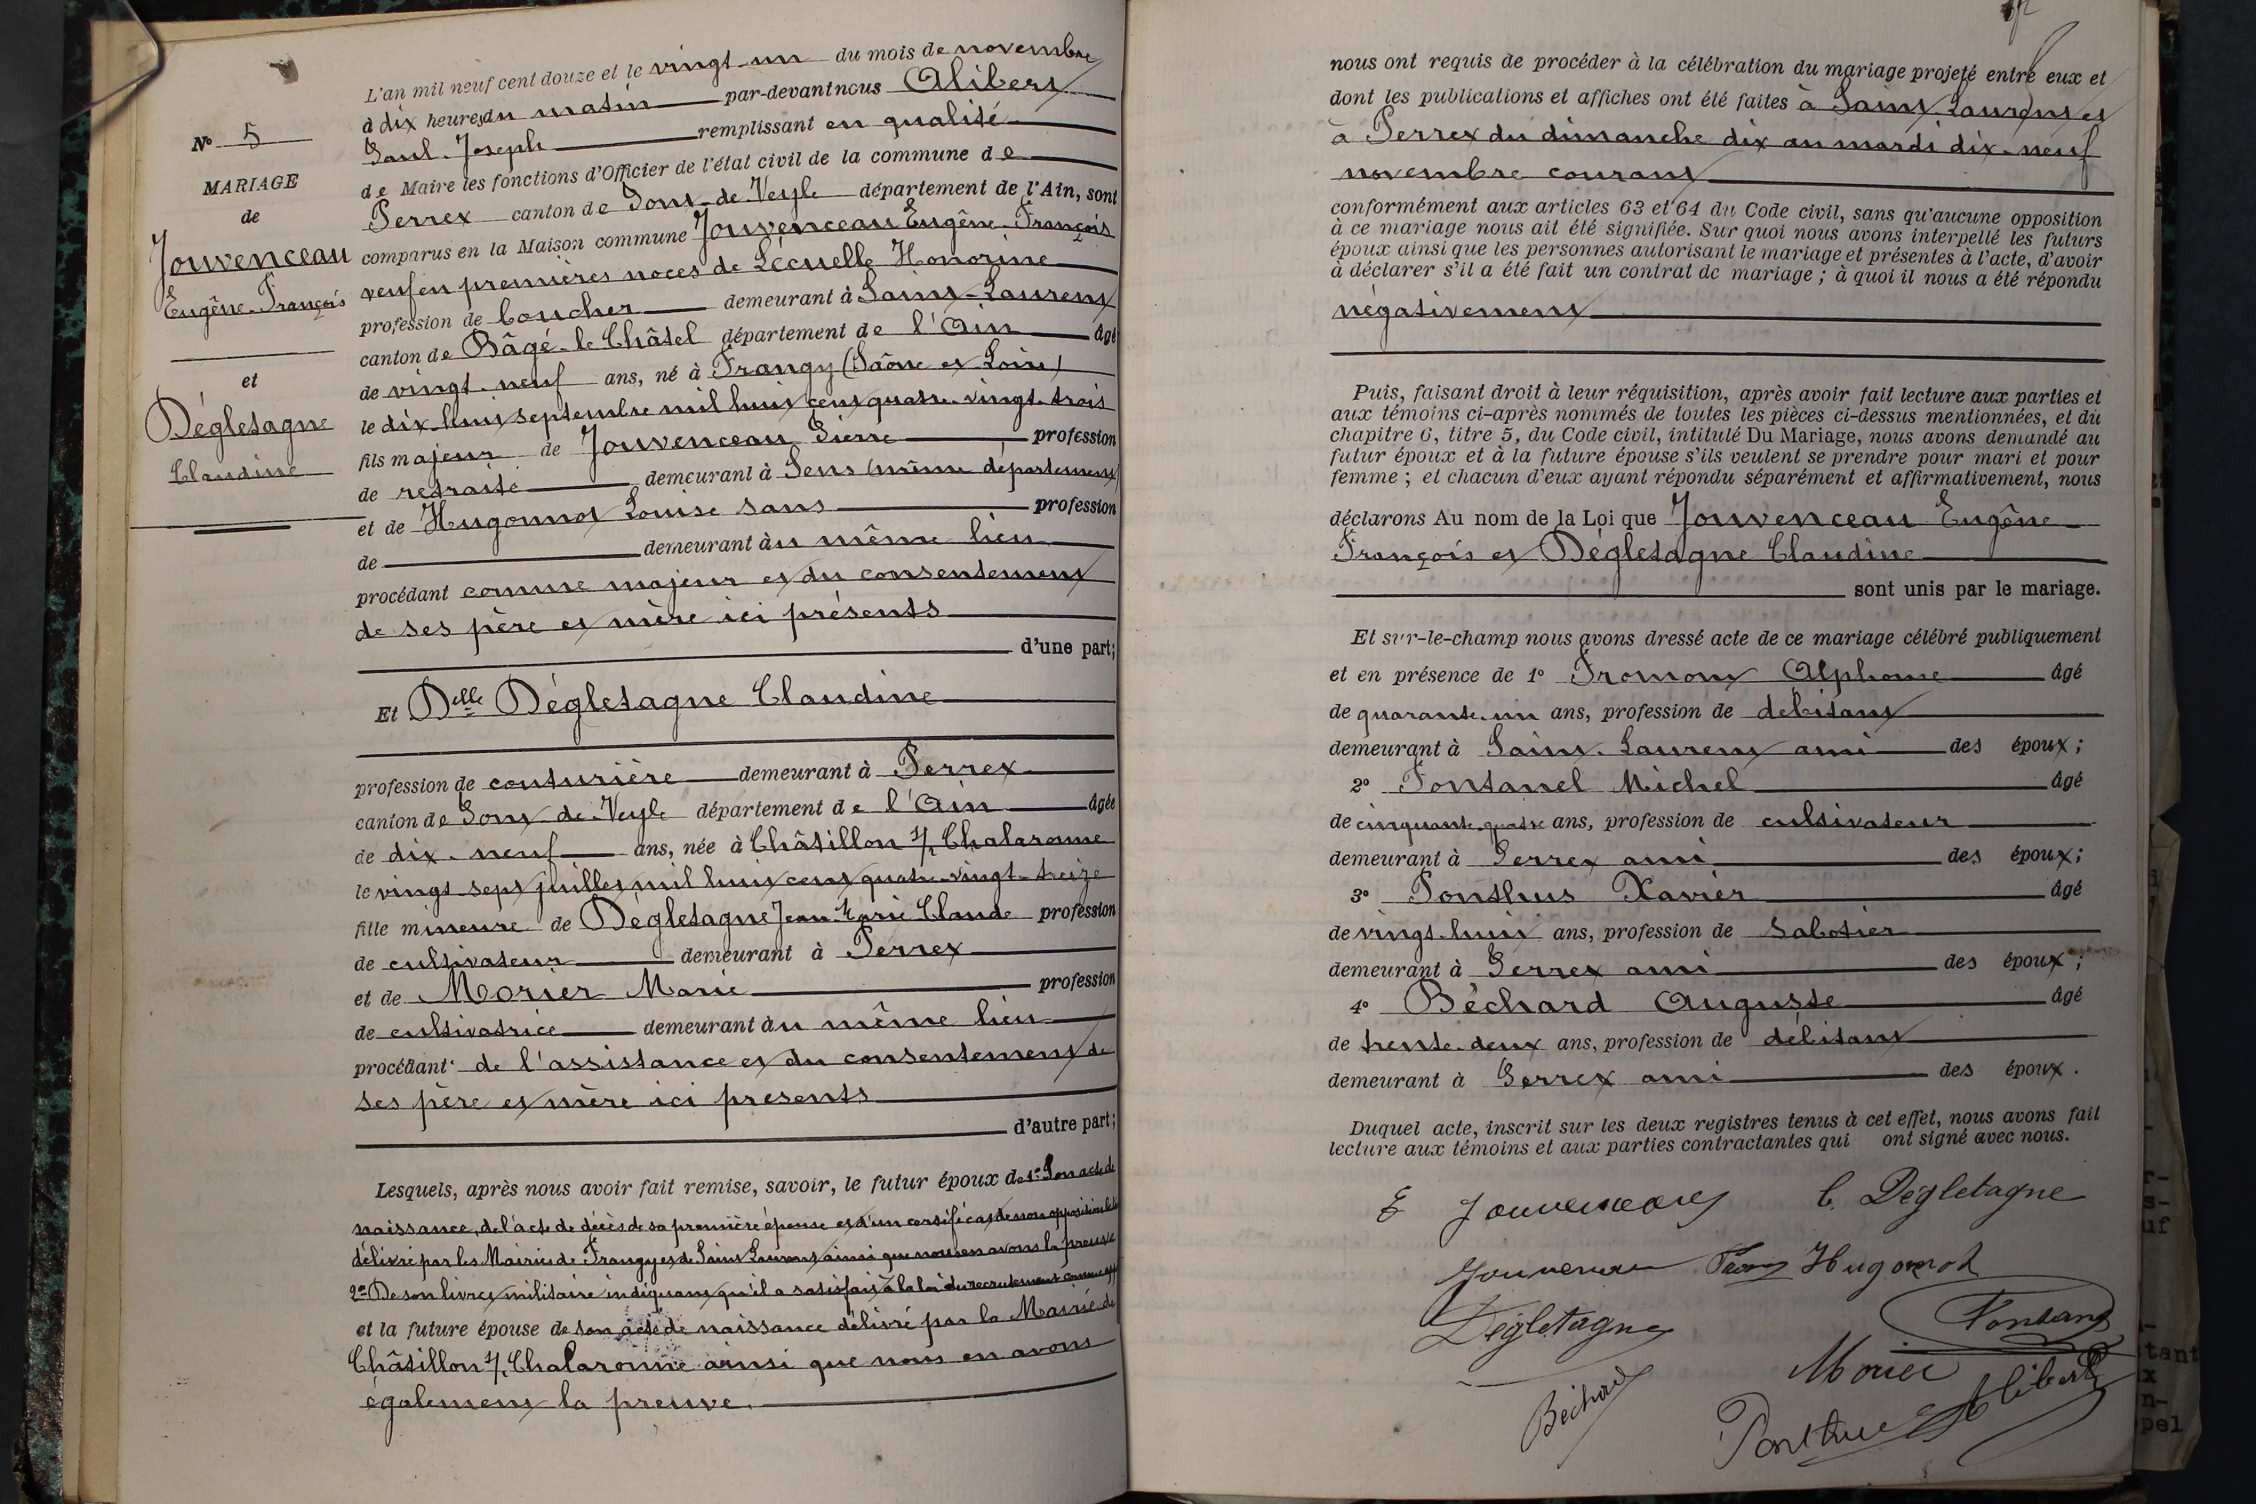 L'an mil neuf cent douze et le vingt-un du mois de novembre
à dix heures du matin par-devant nous Alibert
Paul-Joseph remplissant en qualité
de Maire les fonctions d'Officier de l'état civil de la commune de
Perrex canton de Pont-de-Veyle département de l'Ain, sont
comparus en la Maison commune Jouvenceau Eugène-François
veuf en premières noces de Lécuelle Honorine
profession de boucher demeurant à Saint-Laurent
canton de Bâgé-le-Châtel département de l'Ain âgé
de vingt-neuf ans, né à Frangy (Saône et Loire)
le dix-huit septembre mil huit cent quatre-vingt-trois
fils majeur de Jouvenceau Pierre profession
de retraité demeurant à Sens (même département)
et de Hugonnot Louise sans profession
de demeurant au même lieu
procédant comme majeur et du consentement
de ses père et mère ici présents
d'une part;
Et Delle Dégletagne Claudine
profession de couturière demeurant à Perrex
canton de Pont-de-Veyle département de l'Ain âgée
de dix-neuf ans, née à Châtillon s/ Chalaronne
le vingt-sept juillet mil huit cent quatre-vingt-treize
fille mineure de Dégletagne Jean-Marie Claude profession
de cultivateur demeurant à Perrex
et de Morier Marie profession
de cultivatrice demeurant au même lieu
procédant de l'assistance et du consentement de
ses père et mère ici présents
d'autre part;
Lesquels, après nous avoir fait remise, savoir, le futur époux de 1° Son acte de
naissance, de l'acte de décès de sa première épouse et d'un certificat de non opposition
délivré par les Mairies de Frangy et de Saint Laurent ainsi que nous en avons la preuve
2° De son livret militaire indiquant qu'il a satisfait à la loi du recrutement
et la future épouse de son acte de naissance délivré par la Mairie de
Châtillon s/ Chalaronne ainsi que nous en avons
également la preuve.
N° 5
MARIAGE
de
Jouvenceau
Eugène-François
et
Dégletagne
Claudine
nous ont requis de procéder à la célébration du mariage projeté entre eux et
dont les publications et affiches ont été faites à Saint-Laurent et
à Perrex du dimanche dix au mardi dix-neuf
novembre courant
conformément aux articles 63 et 64 du Code civil, sans qu'aucune opposition
à ce mariage nous ait été signifiée. Sur quoi nous avons interpellé les futurs
époux ainsi que les personnes autorisant le mariage et présentes à l'acte, d'avoir
à déclarer s'il a été fait un contrat de mariage ; à quoi il nous a été répondu
négativement
Puis, faisant droit à leur réquisition, après avoir fait lecture aux parties et
aux témoins ci-après nommés de toutes les pièces ci-dessus mentionnées, et du
chapitre 6, titre 5, du Code civil, intitulé Du Mariage, nous avons demandé au
futur époux et à la future épouse s'ils veulent se prendre pour mari et pour
femme ; et chacun d'eux ayant répondu séparément et affirmativement, nous
déclarons Au nom de la Loi que Jouvenceau Eugène
François et Dégletagne Claudine
sont unis par le mariage.
Et sur-le-champ nous avons dressé acte de ce mariage célébré publiquement
et en présence de 1° Fromont Alphonse âgé
de quarante-un ans, profession de débitant
demeurant à Saint-Laurent ami des époux ;
2° Fontanel Michel âgé
de cinquante-quatre ans, profession de cultivateur
demeurant à Perrex ami des époux ;
3° Ponthus Xavier âgé
de vingt-huit ans, profession de sabotier
demeurant à Perrex ami des époux ;
4° Béchard Auguste âgé
de trente-deux ans, profession de débitant
demeurant à Perrex ami des époux.
Duquel acte, inscrit sur les deux registres tenus à cet effet, nous avons fait
lecture aux témoins et aux parties contractantes qui ont signé avec nous.
E Jouvenceau C. Dégletagne
Jouvenceau Hugonnot
Dégletagne Fontanel
Morier
Béchard Ponthus Alibert